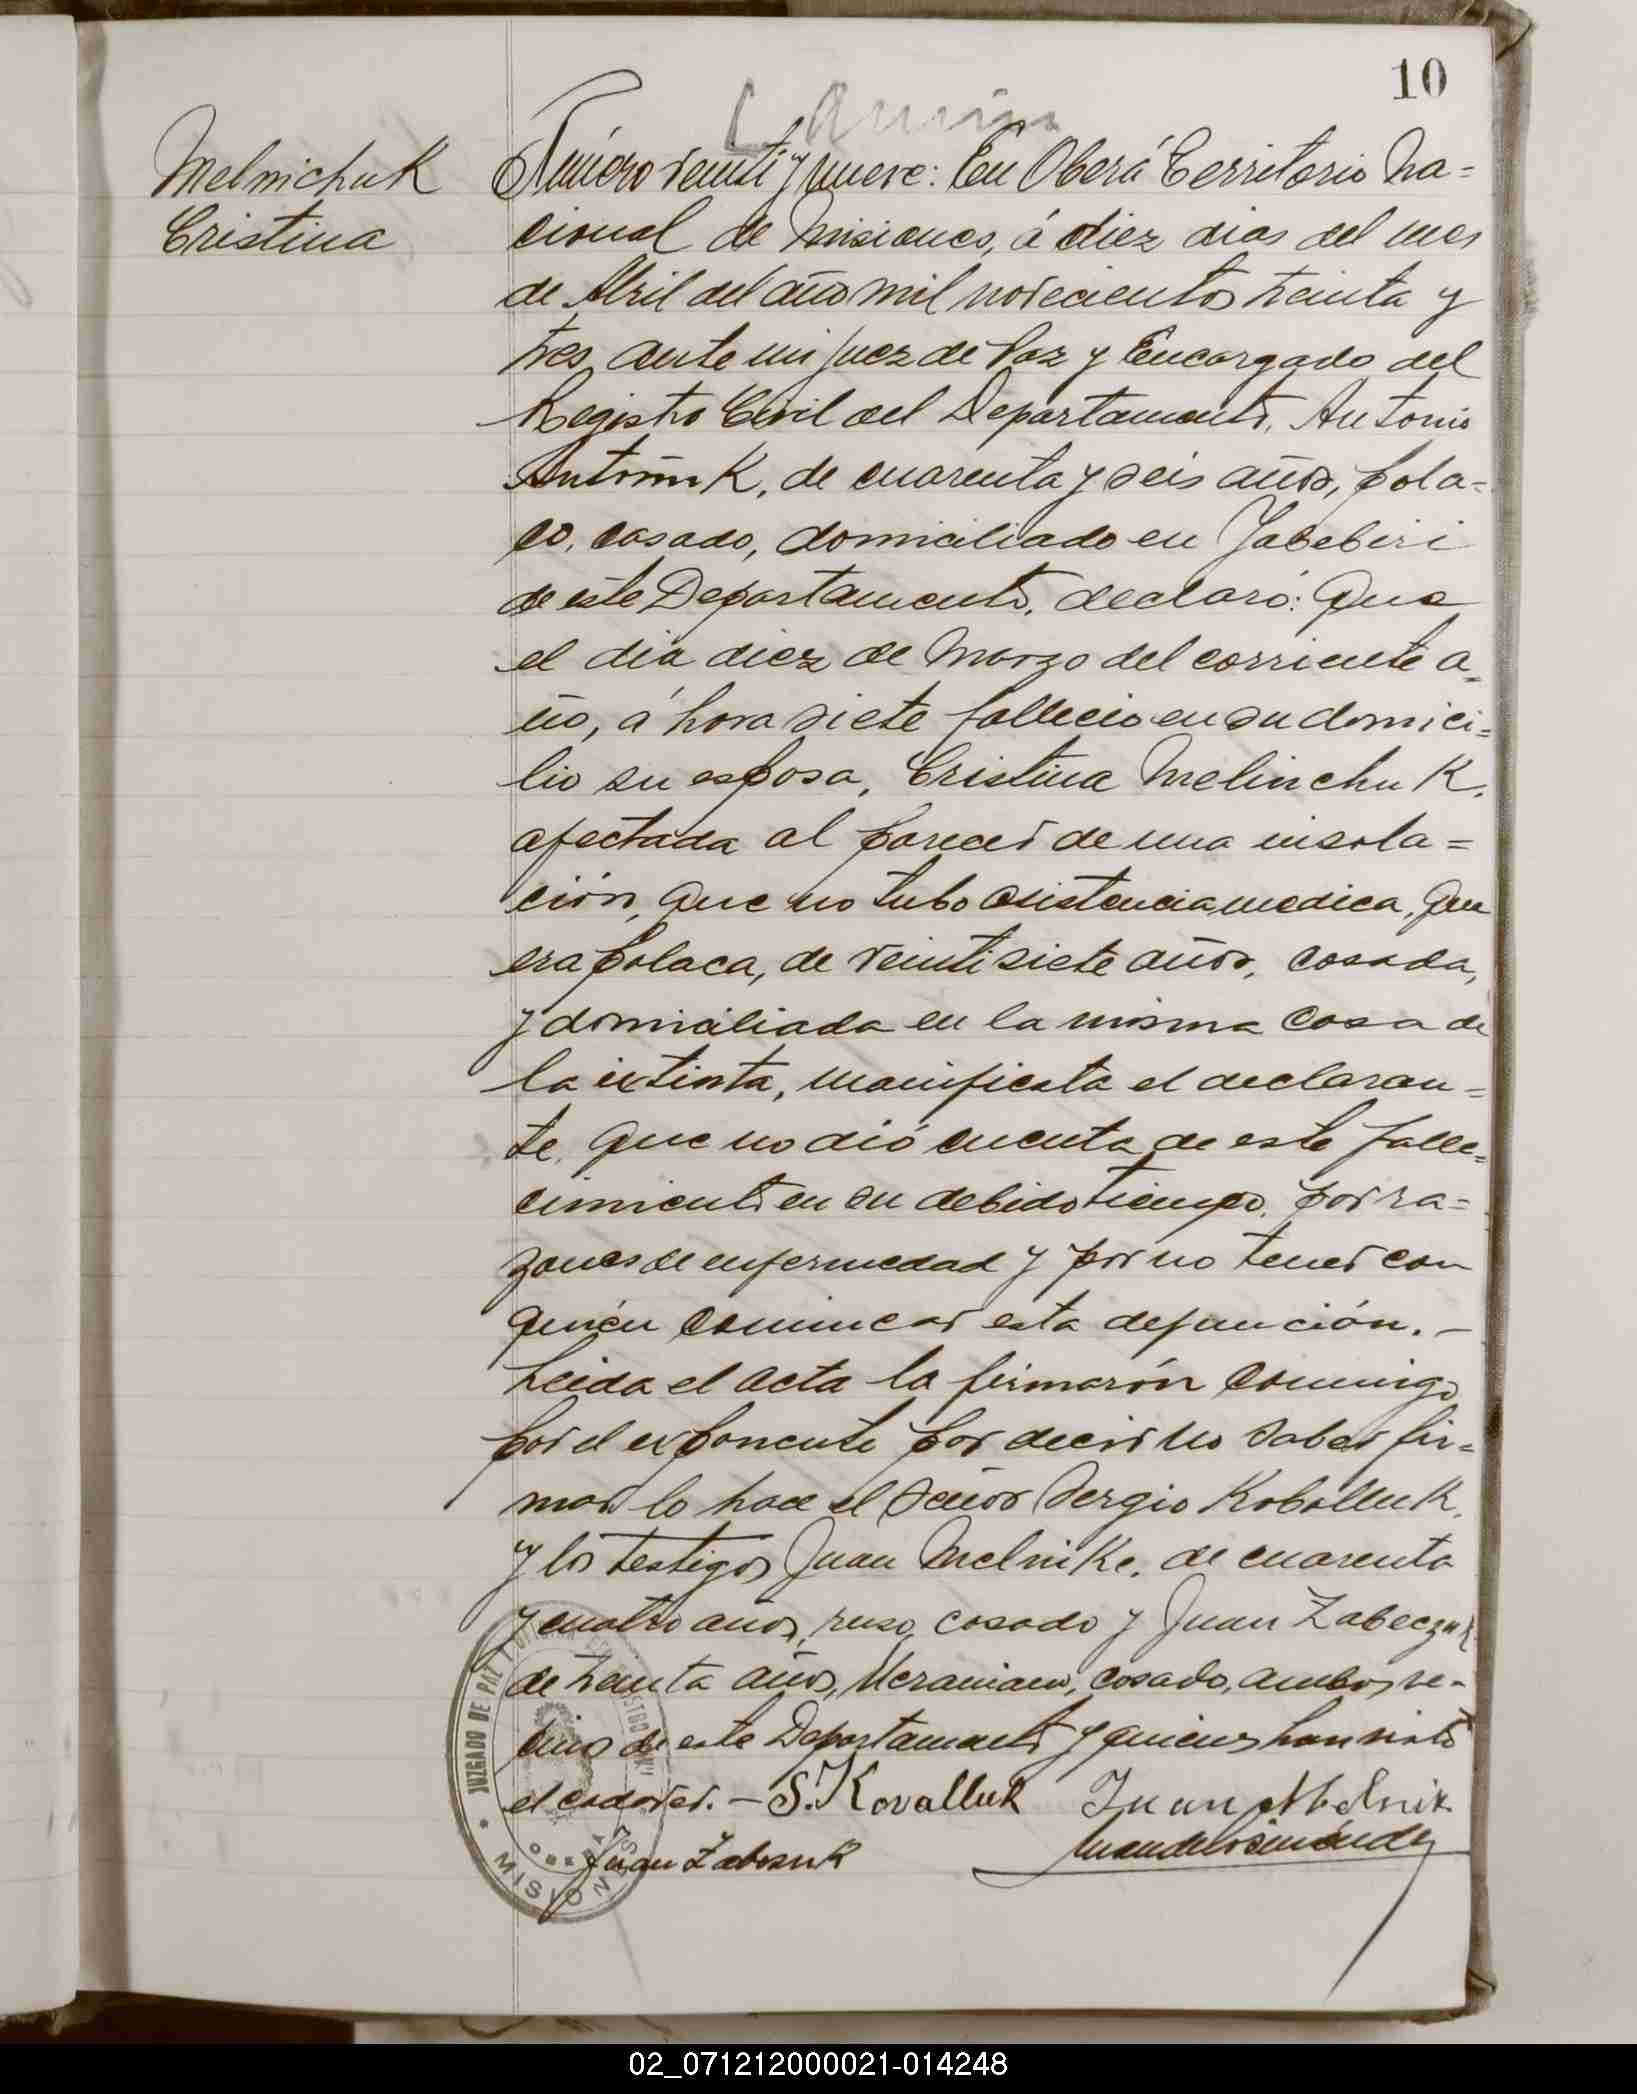 10
Melnichuk
Cristina
Número veinti y nueve: En Oberá Territorio Na=
cional de Misiones, á diez dias del mes
de Abril del año mil novecientos treinta y
tres, ante mi Juez de Paz y Encargado del
Registro Civil del Departamento, Antonio
Antoniuk, de cuarenta y seis años, pola=
co, casado, domiciliado en Yabebiri
de este Departamento, declaró: Que
el dia diez de Marzo del corriente a=
ño, á hora siete fallecio en su domici=
lio su esposa, Cristina Melinchuk,
afectada al parecer de una insola=
ción, que no tubo asistencia medica, que
era polaca, de veintisiete años, casada,
y domiciliada en la misma casa de
la extinta, manifiesta el declaran=
te, que no dió cuenta de este falle=
cimiento en su debido tiempo, por ra=
zones de enfermedad y por no tener con
quién comunicar esta defunción.—
Leida el acta la firmarón conmigo
por el exponente por decir no saber fir=
mar lo hace el señor Sergio Koballuk,
y los testigos Juan Melnike, de cuarenta
y cuatro años, ruso, casado y Juan Zabeczuk
de treinta años, Ucraniano, casado, ambos ve=
cinos de este Departamento y quienes han visto
el cadaver.— S. Kovalluk Juan Melnik
Juan Zabosuk
JUZGADO DE PAZ
OBERA
MISIONES
02_071212000021-014248